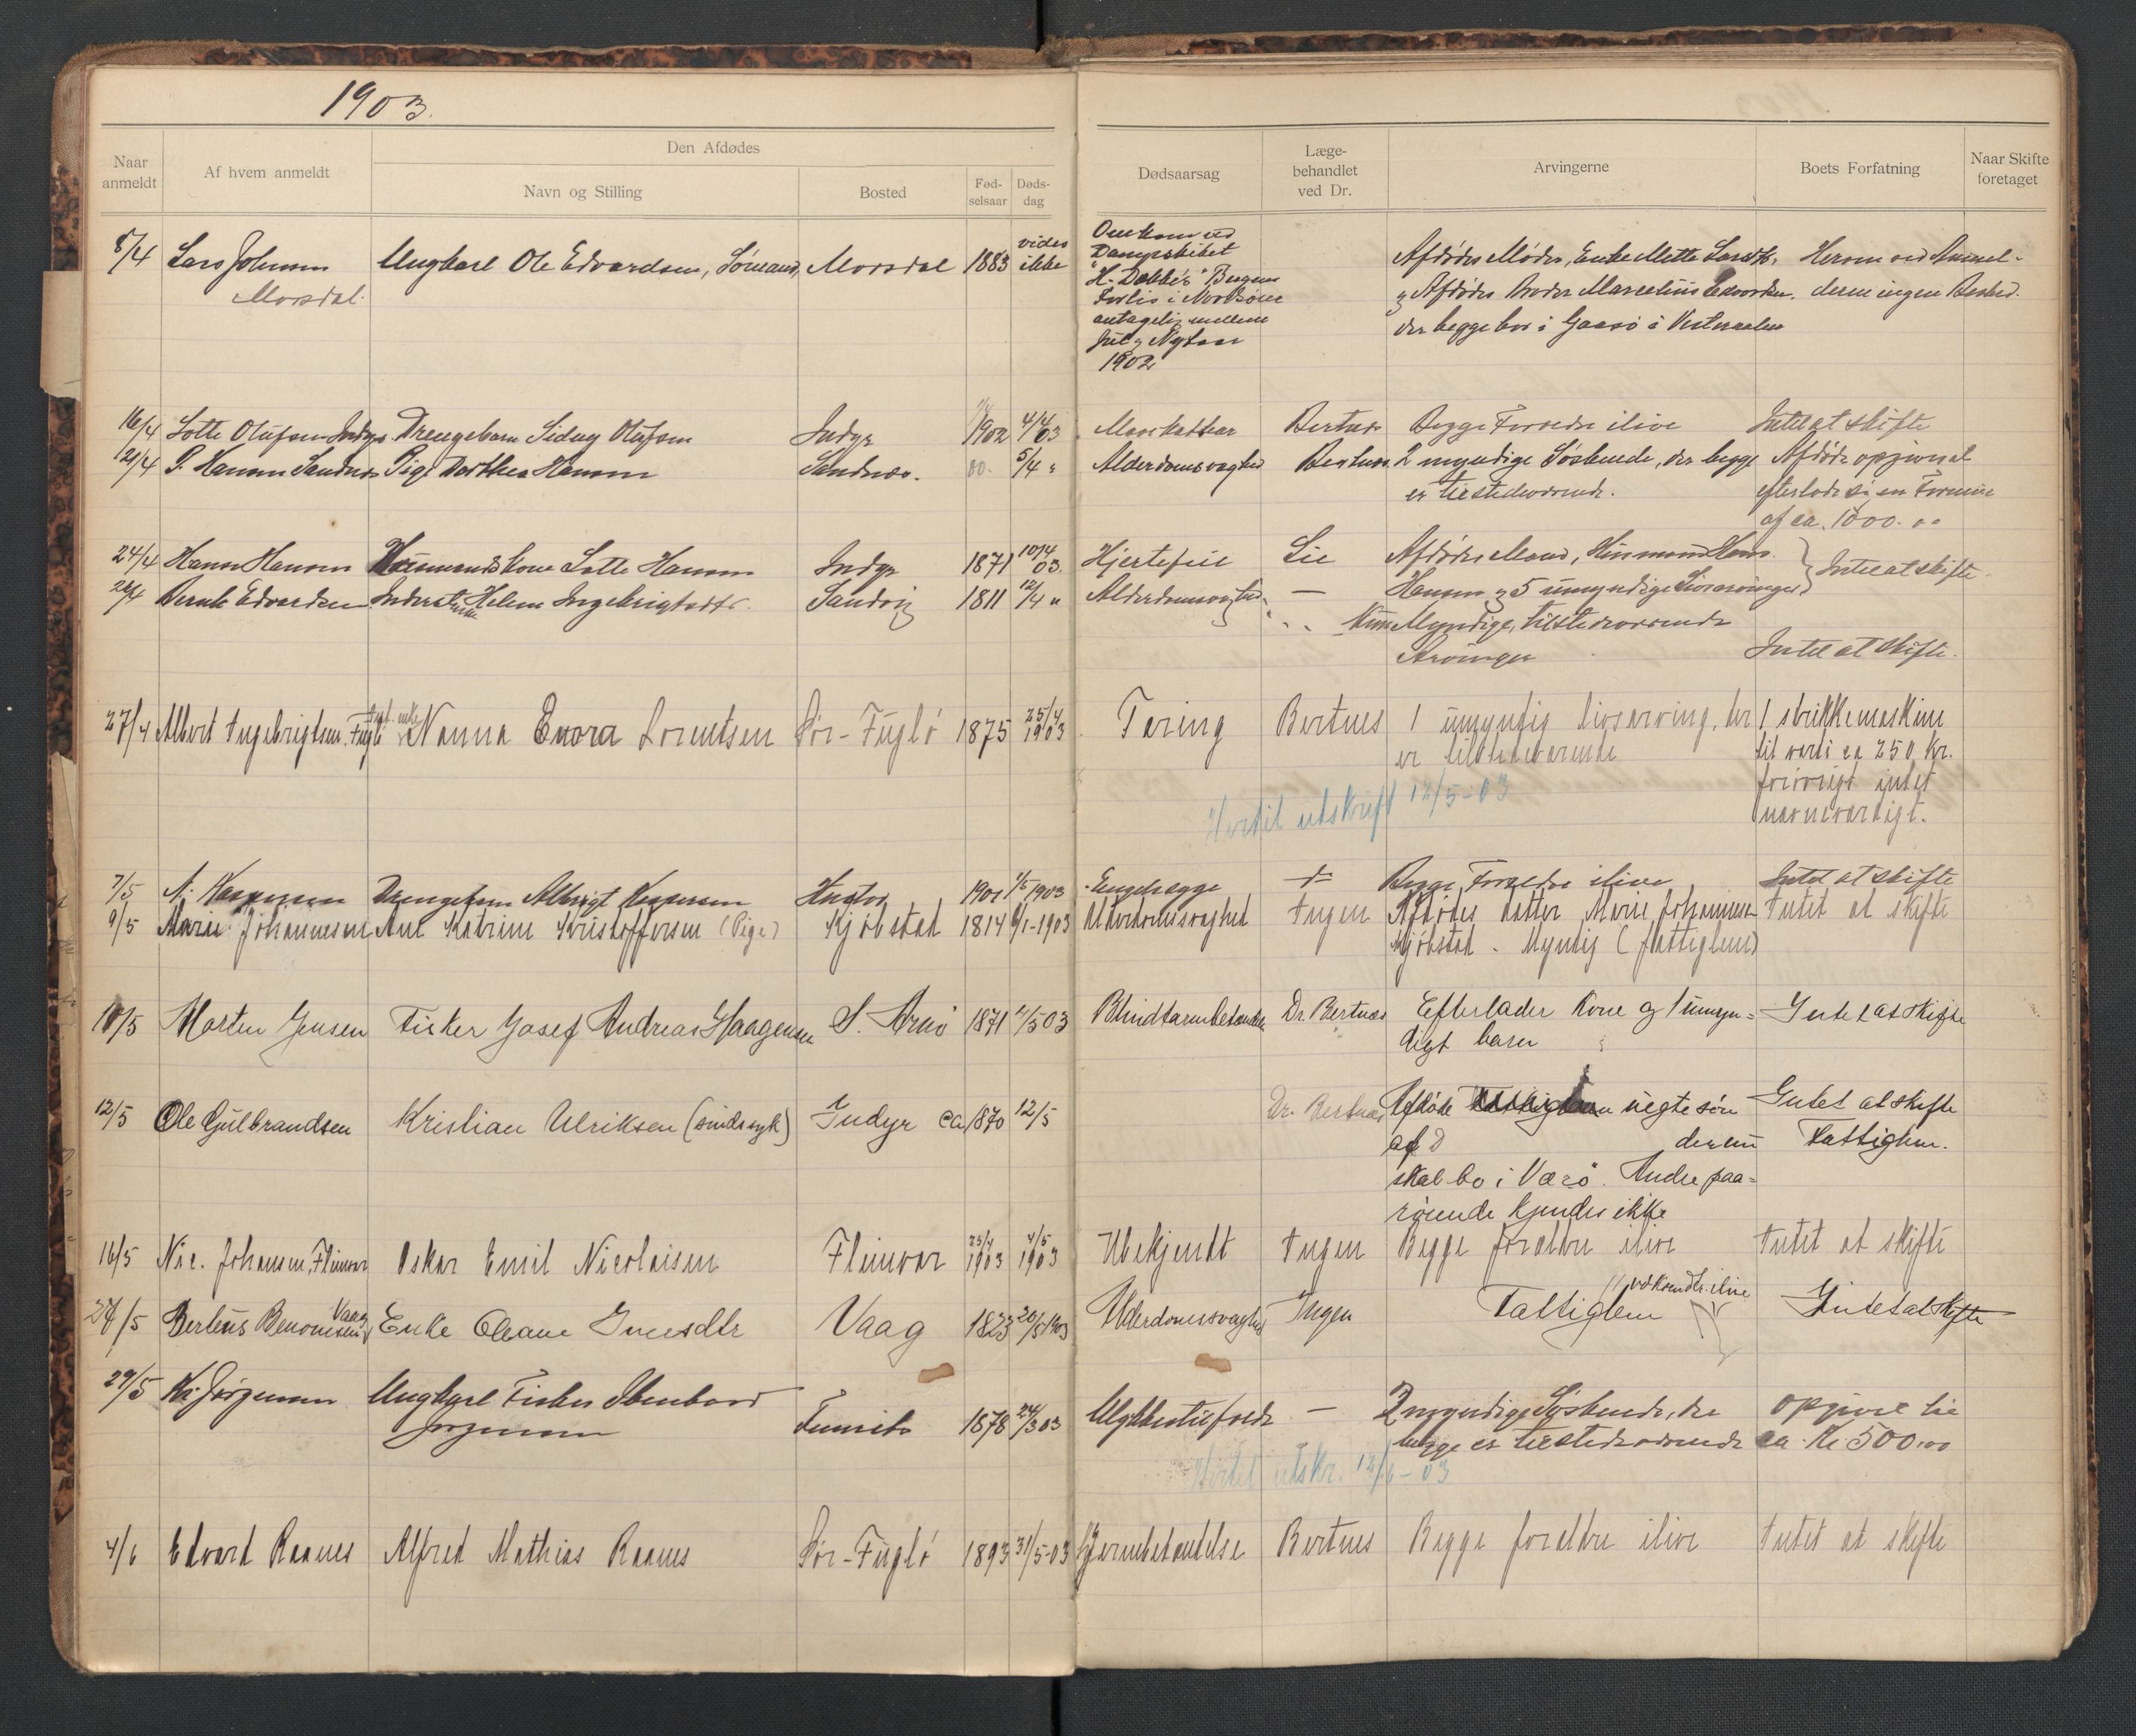 1903.
Naar anmeldt
Af hvem anmeldt
Den Afdødes
Navn og Stilling
Bosted
Fød-selsaar
Døds-dag
Dødsaarsag
Læge-behandlet ved Dr.
Arvingerne
Boets Forfatning
Naar Skifte foretaget
8/4 Lars Johnsen Ungkarl Ole Edvardsen, Sømand, Morsdal 1883 vides ikke
Morsdal.
Omkom ved
Dampskibet
Bergens
Forlis i Nordsøen
antagelig mellem
Jul og Nytaar
1902
Afdødes Moder, Enke Mette
og Afdødes Broder Marcelius Edvardsen.
der begge bor i i Vesteraalen
Herom ved Anmel-
deren ingen Besked.
16/4 Lotte Olufsen Indyr Drengebarn Sidny Olufsen Indyr 1902 4/4 03 Bertnes Begge Forældre ilive Intet at skifte
21/4 P. Hansen Sandnes Pige Dorthea Hansen Sandnes. 5/4 " Alderdomsvaghed Bertnes 2 myndige Søskende, der begge Afdøde opgives at
er tilstedeværende. efterlade sig en Formue
af ca. 1000.00
24/4 Hans Hansen Husmandskone Lotte Hansen Indyr 1871 10/4 03. Hjertefeil Lie Afdødes Mand, Husmand Hans
Hansen og 5 umyndige Livsarvinger Intet at skifte
26/4 Bernt Edvardsen Inderst Enke Helene Ingebrigtsdtr. Sandvig 1811 12/4 " Alderdomsvaghed — Kun Myndige, tilstedeværende
Arvinger Intet at skifte.
27/4 Albert Ingebrigtsen, Fuglö enke Nanna Enora Lorentsen Sør-Fuglö 1875 25/4 1903 Tæring Bertnes 1 umyndig livsarving, der 1 strikkemaskine
er tilstedeværende til værdi ca 250 Kr.
forövrigt intet
nævneværdigt.
Hertil utskrift 12/5-03
7/5 N. Kaspersen Drengebarn Albrigt Kaspersen 1901 1903 Begge Forældre ilive Intet at skifte
9/5 Marie Johannesen Ane Katrine Kristoffersen (Pige) Kjøbstad 1814 6/1-1903 Alderdomsvaghed Ingen Afdødes datter Marie Johannesen Intet at skifte
Kjøbstad. Myndig (fattiglem)
10/5 Morten Jensen Fisker Josef Andreas Haagensen S. Arnö 1871 03 Blindtarmbetændelse Dr. Bertnes Efterlader Kone og 1 umyn= Intet at skifte
digt barn
12/5 Ole Gulbrandsen Kristian Ulriksen (sindssyk) Indyr ca 1870 12/5 Dr. Bertnes Afdöde uegte sön Intet at skifte
af der nu Fattiglem.
skal bo i Værö. Andre paa=
rörende kjendes ikke
16/5 Nic. Johansen, Fleinvær Oskar Emil Nicolaisen Fleinvær 25/4 1903 4/5 1903 Ubekjendt Ingen Begge forældre ilive Intet at skifte
27/5 Berteus Benonisen Vaag Enke Oleane Jensdtr Vaag 1823 20/5 1903 Alderdomsvaghed Ingen Fattiglem ilive Intet at skifte
29/5 Jørgensen Ungkarl Fisker
Jørgensen 1878 24/3 03 Ulykkestilfælde — 2 myndige Søskende, der opgives til
begge er tilstedeværende ca. Kr 500.00
Hertil utskr. 12/6-03
4/6 Edvard Raanes Alfred Mathias Raanes Sør-Fuglö 1893 31/5-03 Hjernebetændelse Bertnes Begge forældre ilive Intet at skifte